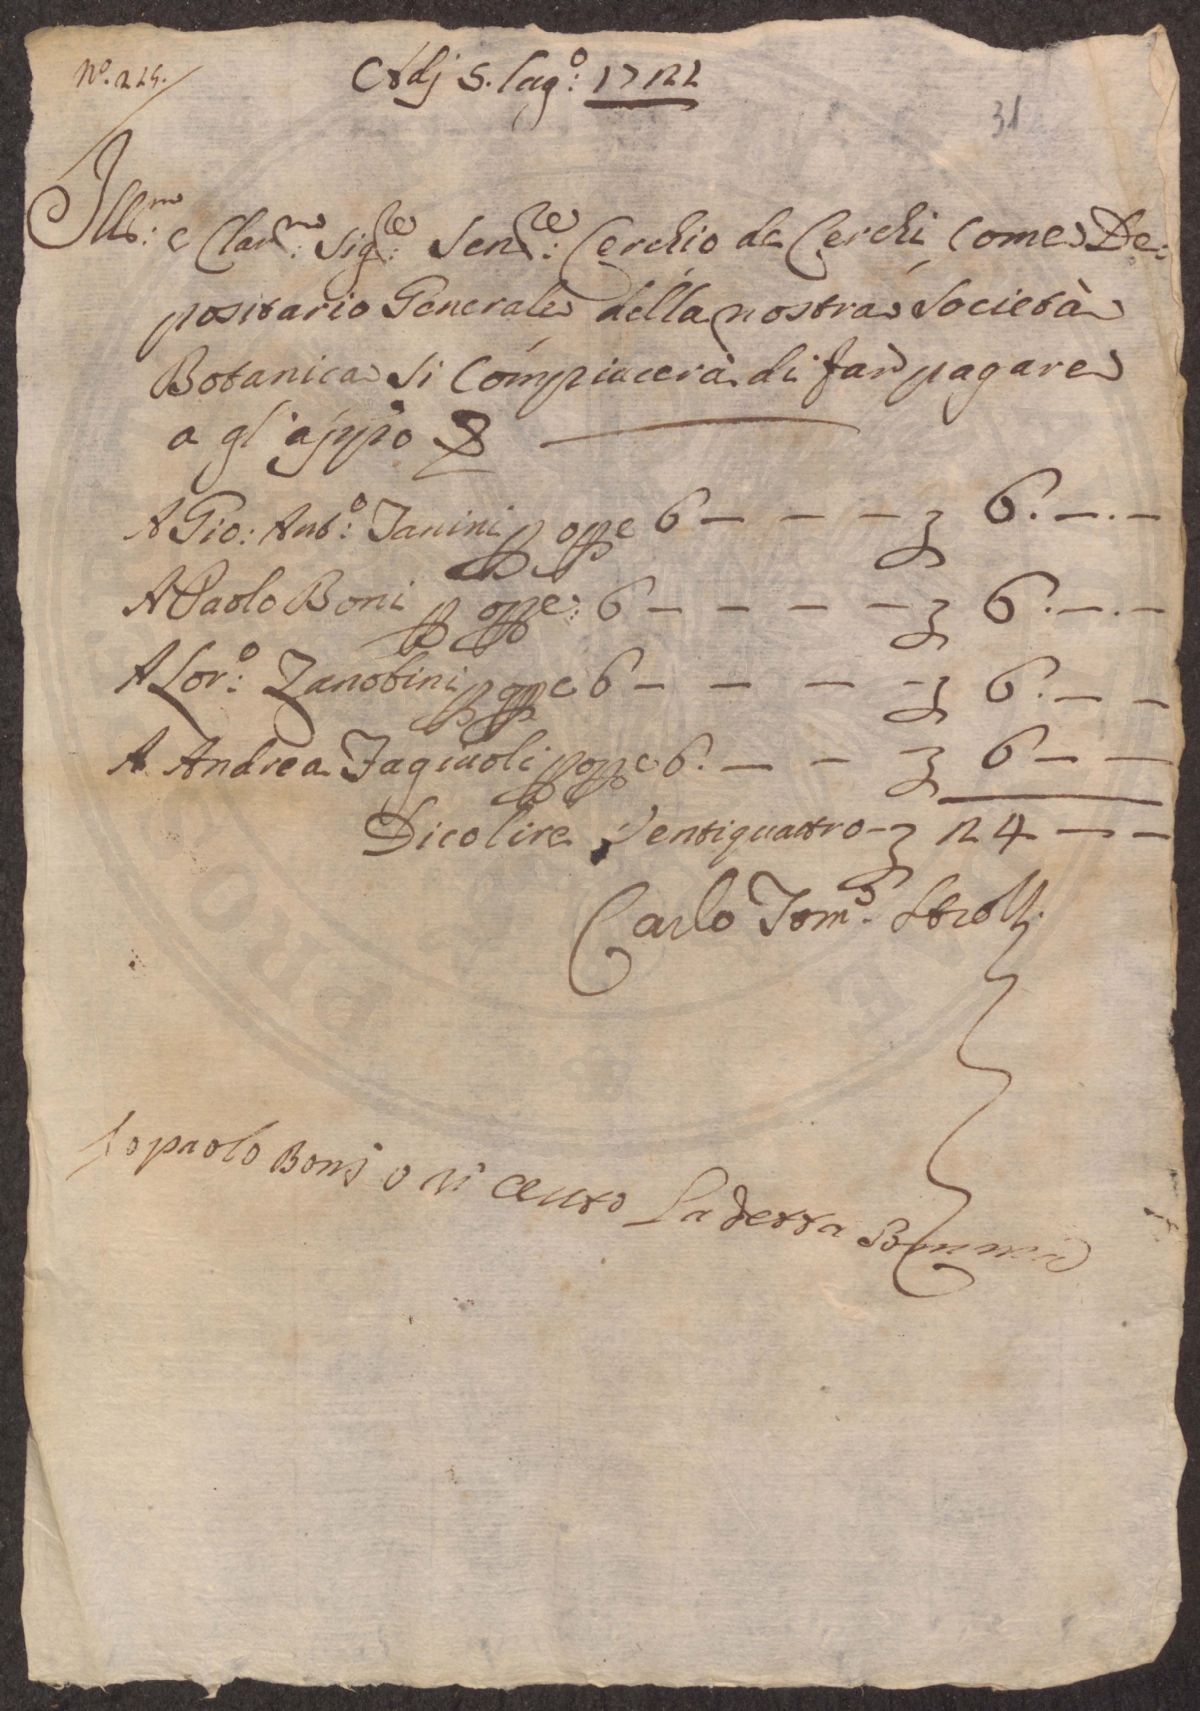 N.º 225.
Adj 5. lag.º: 1722
31
Ill.mo: e Clar.mo: Sig.re: Sen.re: Cerchio de Cerchi come De:
positario Generale della nostra Società
Botanica si Compiacerà di far pagare
a gl'app.o
A Gio: Ant.º: Janini p opp.e 6 — — — £ 6. —. —
A Paolo Boni p opp.e: 6 — — — — £ 6. —. —
A Lor.º: Zanobini p opp.e 6 — — — — £ 6. — —
A Andrea Fagiuoli p opp.e 6. — — £ 6 — —
Dico lire Ventiquattro — £ 24 — —
Carlo Tom.º Strozzi
Io paolo Boni o ri ceuto La detta Somma